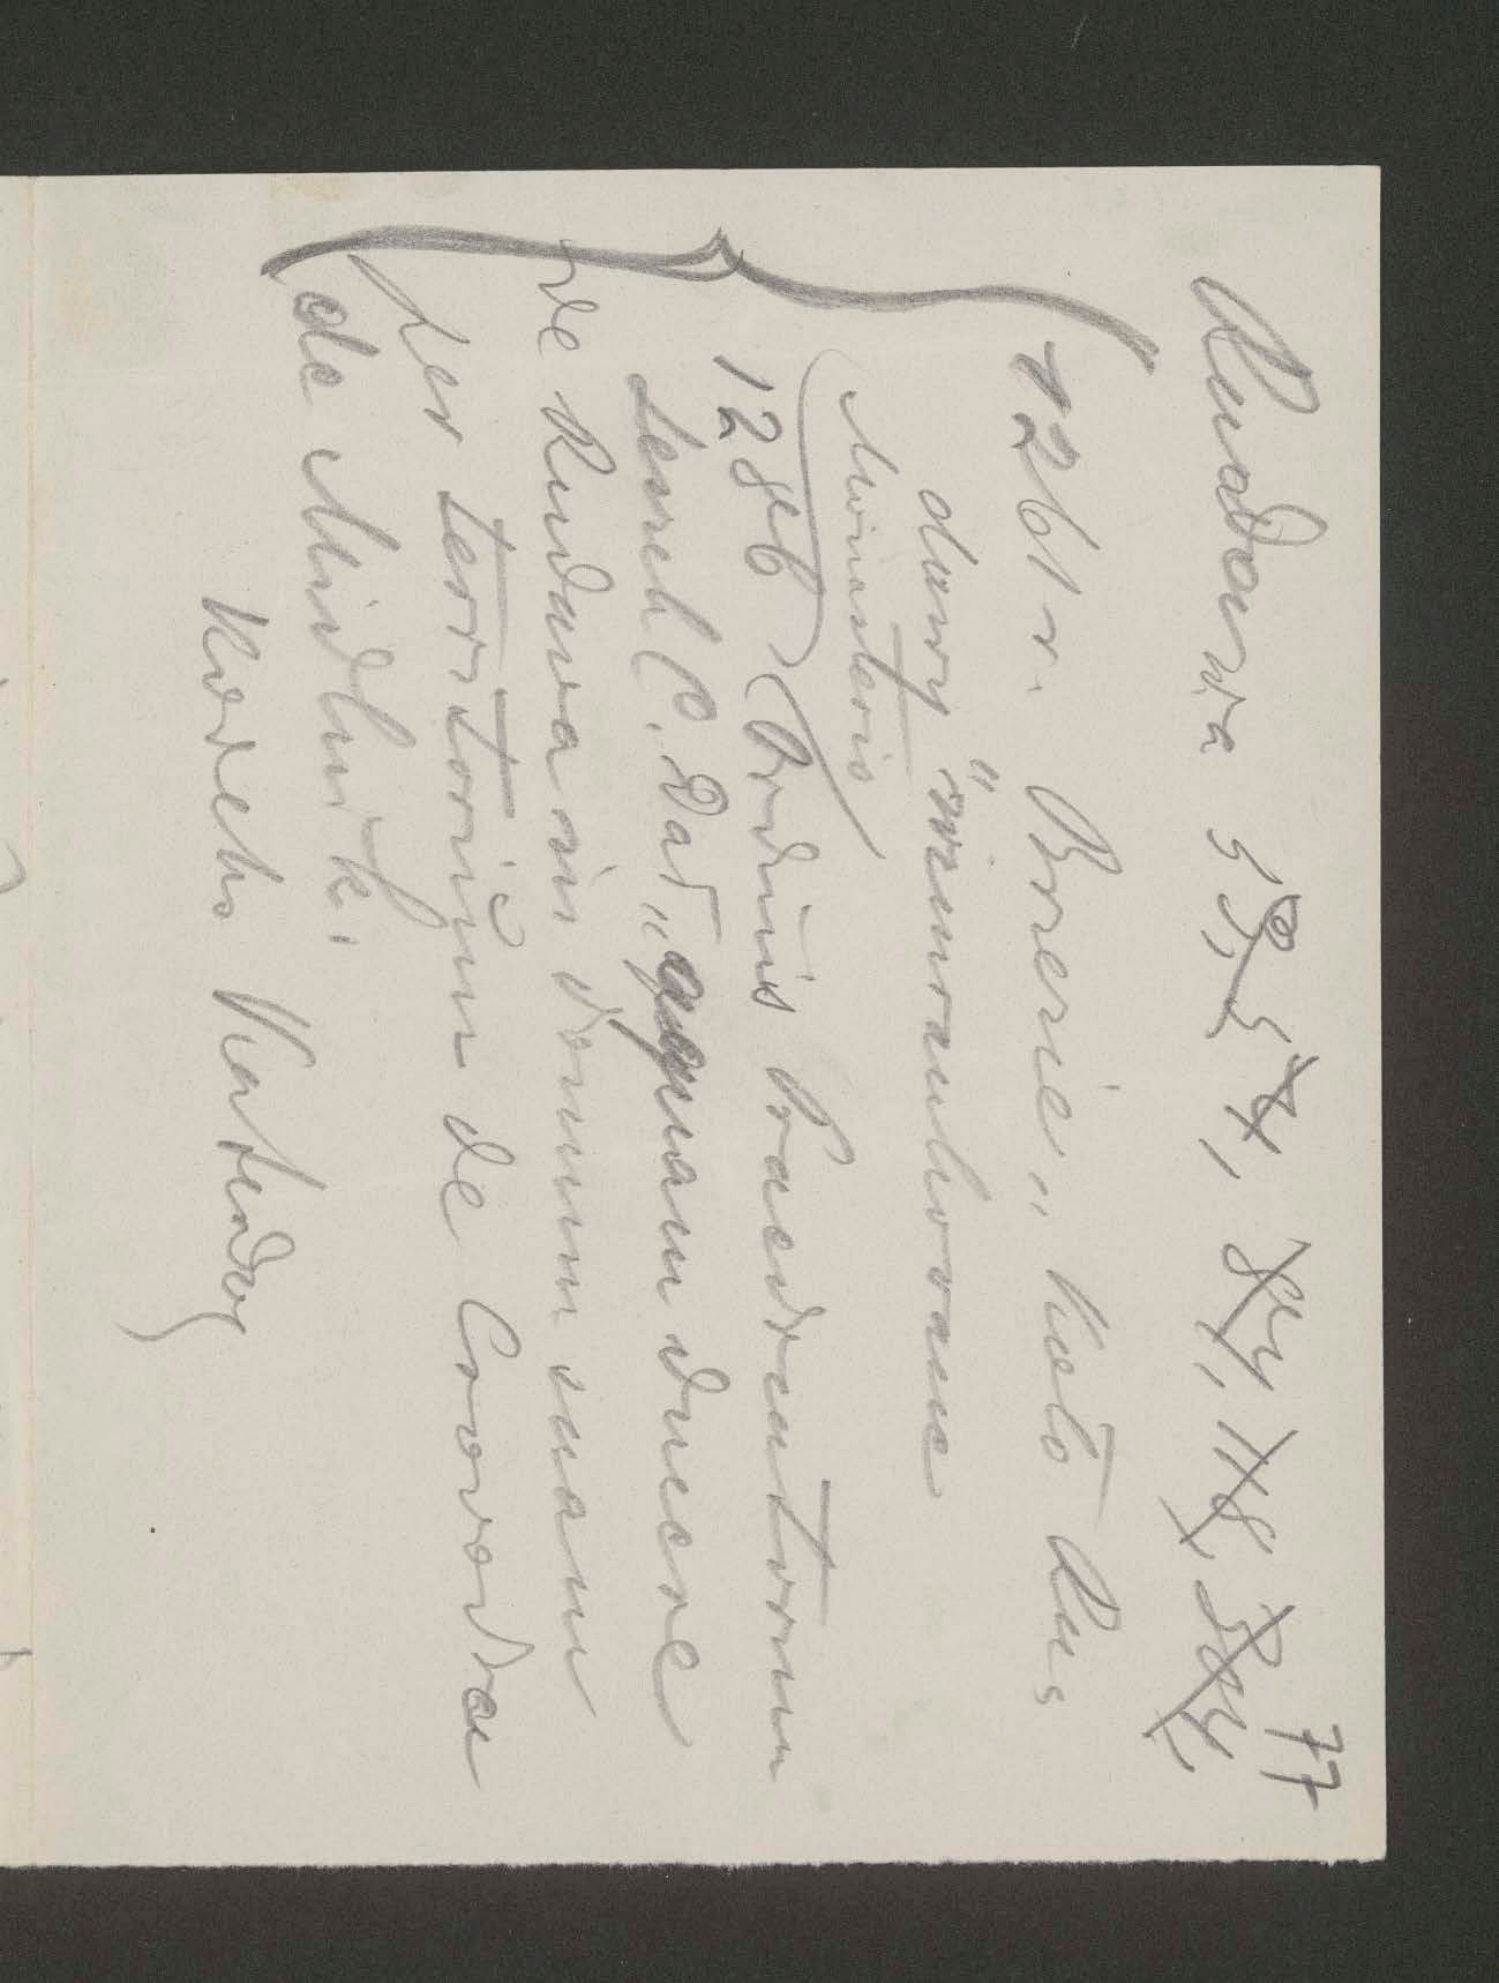 77
Rudawa 53, 54, 84, 118, 304,
1261 r. Brzezie „koło Ru
dawy" immunitowane
Monasterio
1286 Ordinis Praedicatorum
Leszek C. Dat „aquam ducere
de Rudawa in domum suam
per territorium de Crowodra
de Midlnik'
Kodeks Katedry